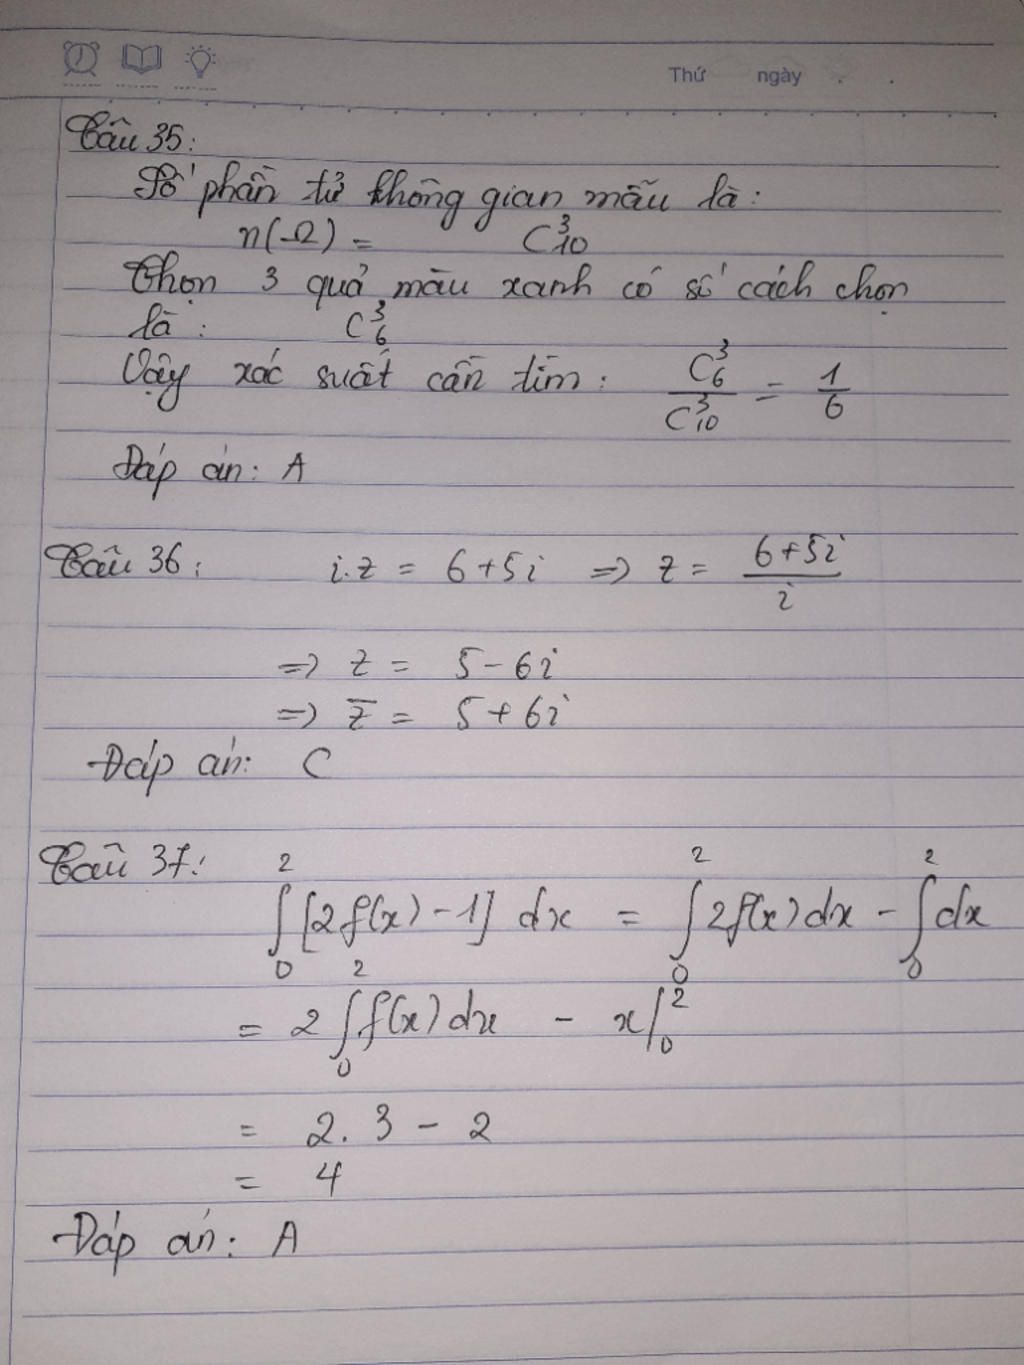 Thứ ngày
Câu 35:
Số phần tử không gian mẫu là:
n(Ω) = C³₁₀
Chọn 3 quả màu xanh có số cách chọn
là: C³₆
Vậy xác suất cần tìm: C³₆/C³₁₀ = 1/6
Đáp án: A
Câu 36: i.z = 6+5i => z = (6+5i)/i
=> z = 5-6i
=> z̄ = 5+6i
Đáp án: C
Câu 37:
∫₀² [2f(x)-1] dx = ∫₀² 2f(x)dx - ∫₀² dx
= 2∫₀² f(x)dx - x|₀²
= 2.3-2
= 4
Đáp án: A